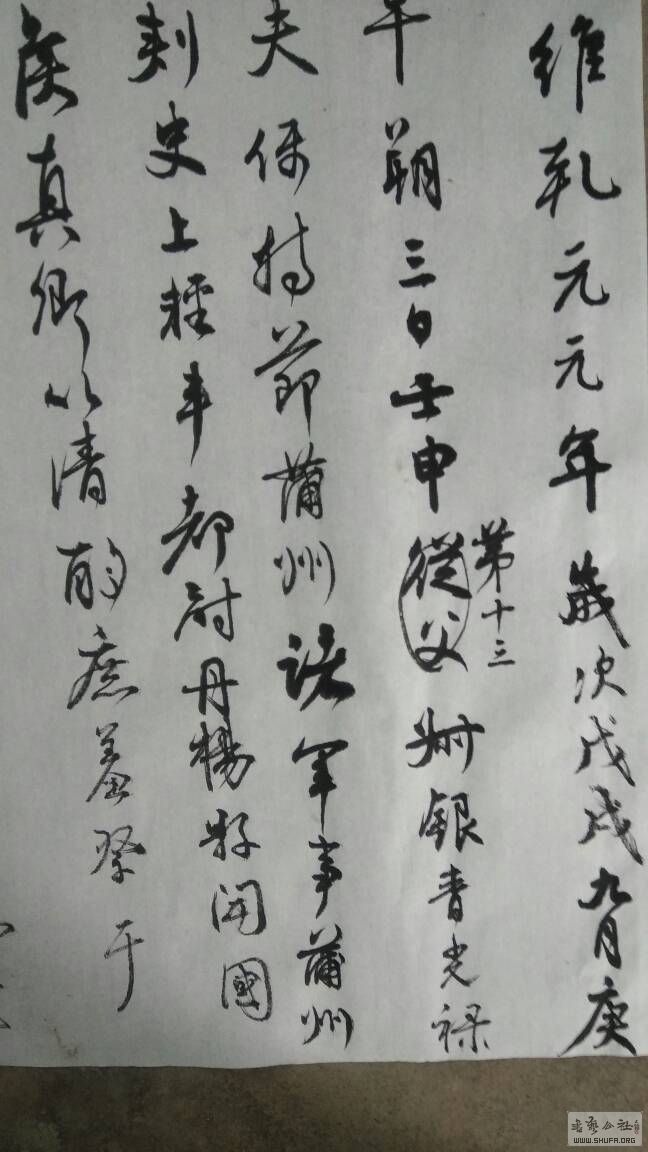 維乾元元年歲次戊戌九月庚
午朔三日壬申從父叔銀青光禄
第十三
夫使持節蒲州諸軍事蒲州
刺史上輕車都尉丹楊縣開國
侯真卿以清酌庶羞祭于
書藝公社
WWW.SHUFA.ORG